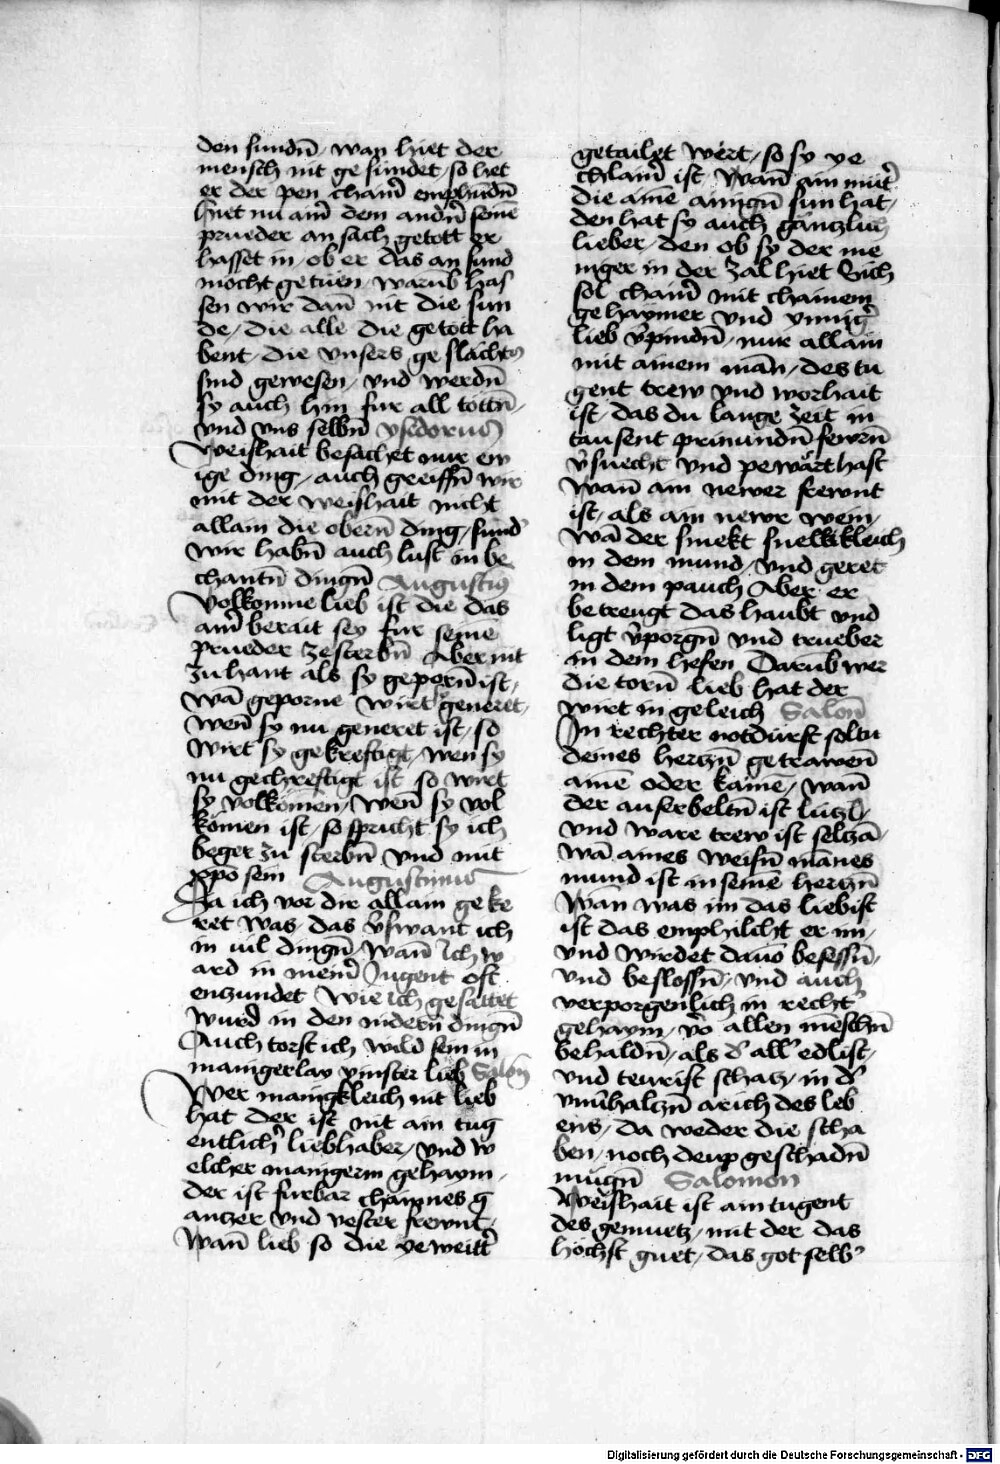 den sundn̄ / wan hiet der
mensch nit ge sundet / so het
er der pen chain̄ emphundn̄
hiet nu ain̄ dem andn̄ seinē
prueder an sach getott er
hasset in / ob er das an sund
mocht getuen / warūb has
sen wir dan̄ nit die sun
de / die alle die getott ha
bent / die vnsers ge slachtes
sind gewesen / vnd werdn̄
sy auch hin fur all tottn̄ /
vnd vns selbn̄ ysidorus
Weishait besachet nur ew
ige ding / auch greiffn̄ wir
mit der weishait nicht
allain die obern̄ ding / sund̾
wir habn̄ auch lust in be
chantn̄ dingn̄ Augustin9
Volkomne lieb ist die das
ain̄ berait sey fur seine
prueder zesterbn̄ Aber nit
zu hant als sy geporn̄ ist /
wā geporne wirt generet /
wen̄ sy nu generet ist / so
wirt sy gekreftigt / wen sy
nu gechreftigt ist so wirt
sy volkōmen / wen̄ sy vol
kōmen ist / so spricht sy ich
beger zu sterbn̄ vnd mit
xp̄o sein Augustinus
Da ich vor dir allain ge ke
ret was / das v̾swant ich
in uil dingn̄ / wan̄ Ich w
ard in mein̄ Jugent oft
enzundet Wie ich gesattet
wurd in den nidern dingn̄
Auch torst ich wild sein in
manigerlay vinster lieb Salon
Wer manigkleich nit lieb
hat der ist nit ain tug
entlich̾ liebhaber / vnd w
elcher manigerm gehaym /
der ist furbar chaynes g
antzer vnd vester frewnt /
Wan̄ lieb so die ye weitt̾
getailet wert / so sy ye
chlain̄ ist Wan̄ ain mut̾
die ainē ainign̄ sun hat /
den hat sy auch gantzlich
lieber / den ob sy der me
niger in der zal hiet Sich
sol chain̄ mit chainem
ge haymer vnd ynnig̾
lieb v̾pindn̄ / nur allain
mit ainem man̄ / des tu
gent trew vnd worhait
ist / das du lange zeit in
tausent prinundn̄ fewrn̄
v̾suecht vnd pewart hast
Wan̄ ain newer frewnt
ist / als ain newr wein /
Wā der smekt snelkkleich
in dem mund / vnd geret
in dem pauch Aber er
betreugt das haubt vnd
ligt v̾porgn̄ vnd trueber
in dem hefen Darūb wer
die torn̄ lieb hat der
wirt in geleich Salon̄
In rechter notdurft soltu
deines hertzn̄ getrawen̄
ainē oder kainē / wan̄
der auserbeltn̄ ist lutzl /
vnd ware trew ist seltzā /
Wā aines weisn̄ mānes
mund ist in seinē hertzn̄
Wan̄ was im das liebist
ist das emphilcht er im /
vnd wirdet dauō besessn̄ /
vnd beslossn̄ / vnd auch
verporgenlich in recht̾
gehaym / vo allen mēschn̄
behaldn̄ / als d̾ all̾ edlist /
vnd teurist schatz / in d̾
vnūhaltzn̄ arich des leb
ens / da weder die scha
ben / noch deup geschadn̄
mugn̄ Salomon
Weishait ist ain tugent
des gemuetz / mit der das
hochst guet / das got selb̾